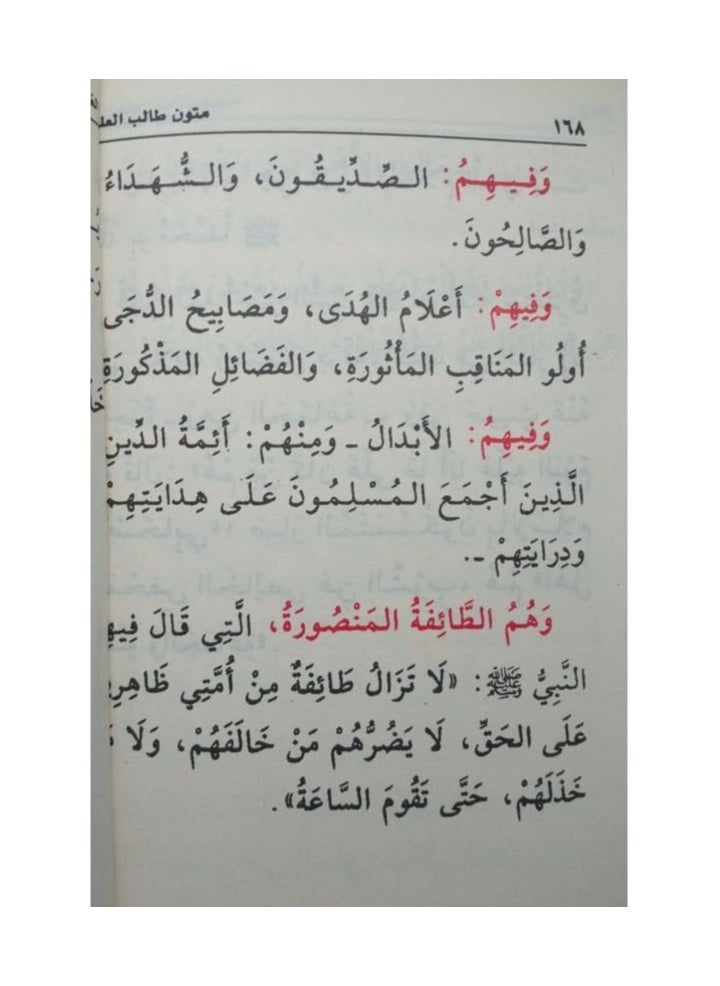 ١٦٨ متون طالب العلـ
وَفِيهِمُ: الصِّدِّيقُونَ، وَالشُّهَدَاءُ
وَالصَّالِحُونَ.
وَفِيهِمْ: أَعْلَامُ الهُدَى، وَمَصَابِيحُ الدُّجَى
أُولُو المَنَاقِبِ المَأْثُورَةِ، وَالفَضَائِلِ المَذْكُورَةِ
وَفِيهِمُ: الأَبْدَالُ ـ وَمِنْهُمْ: أَئِمَّةُ الدِّينِ
الَّذِينَ أَجْمَعَ المُسْلِمُونَ عَلَى هِدَايَتِهِمْ
وَدِرَايَتِهِمْ ـ.
وَهُمُ الطَّائِفَةُ المَنْصُورَةُ، الَّتِي قَالَ فِيهِ
النَّبِيُّ ﷺ: «لَا تَزَالُ طَائِفَةٌ مِنْ أُمَّتِي ظَاهِرِي
عَلَى الحَقِّ، لَا يَضُرُّهُمْ مَنْ خَالَفَهُمْ، وَلَا
خَذَلَهُمْ، حَتَّى تَقُومَ السَّاعَةُ».